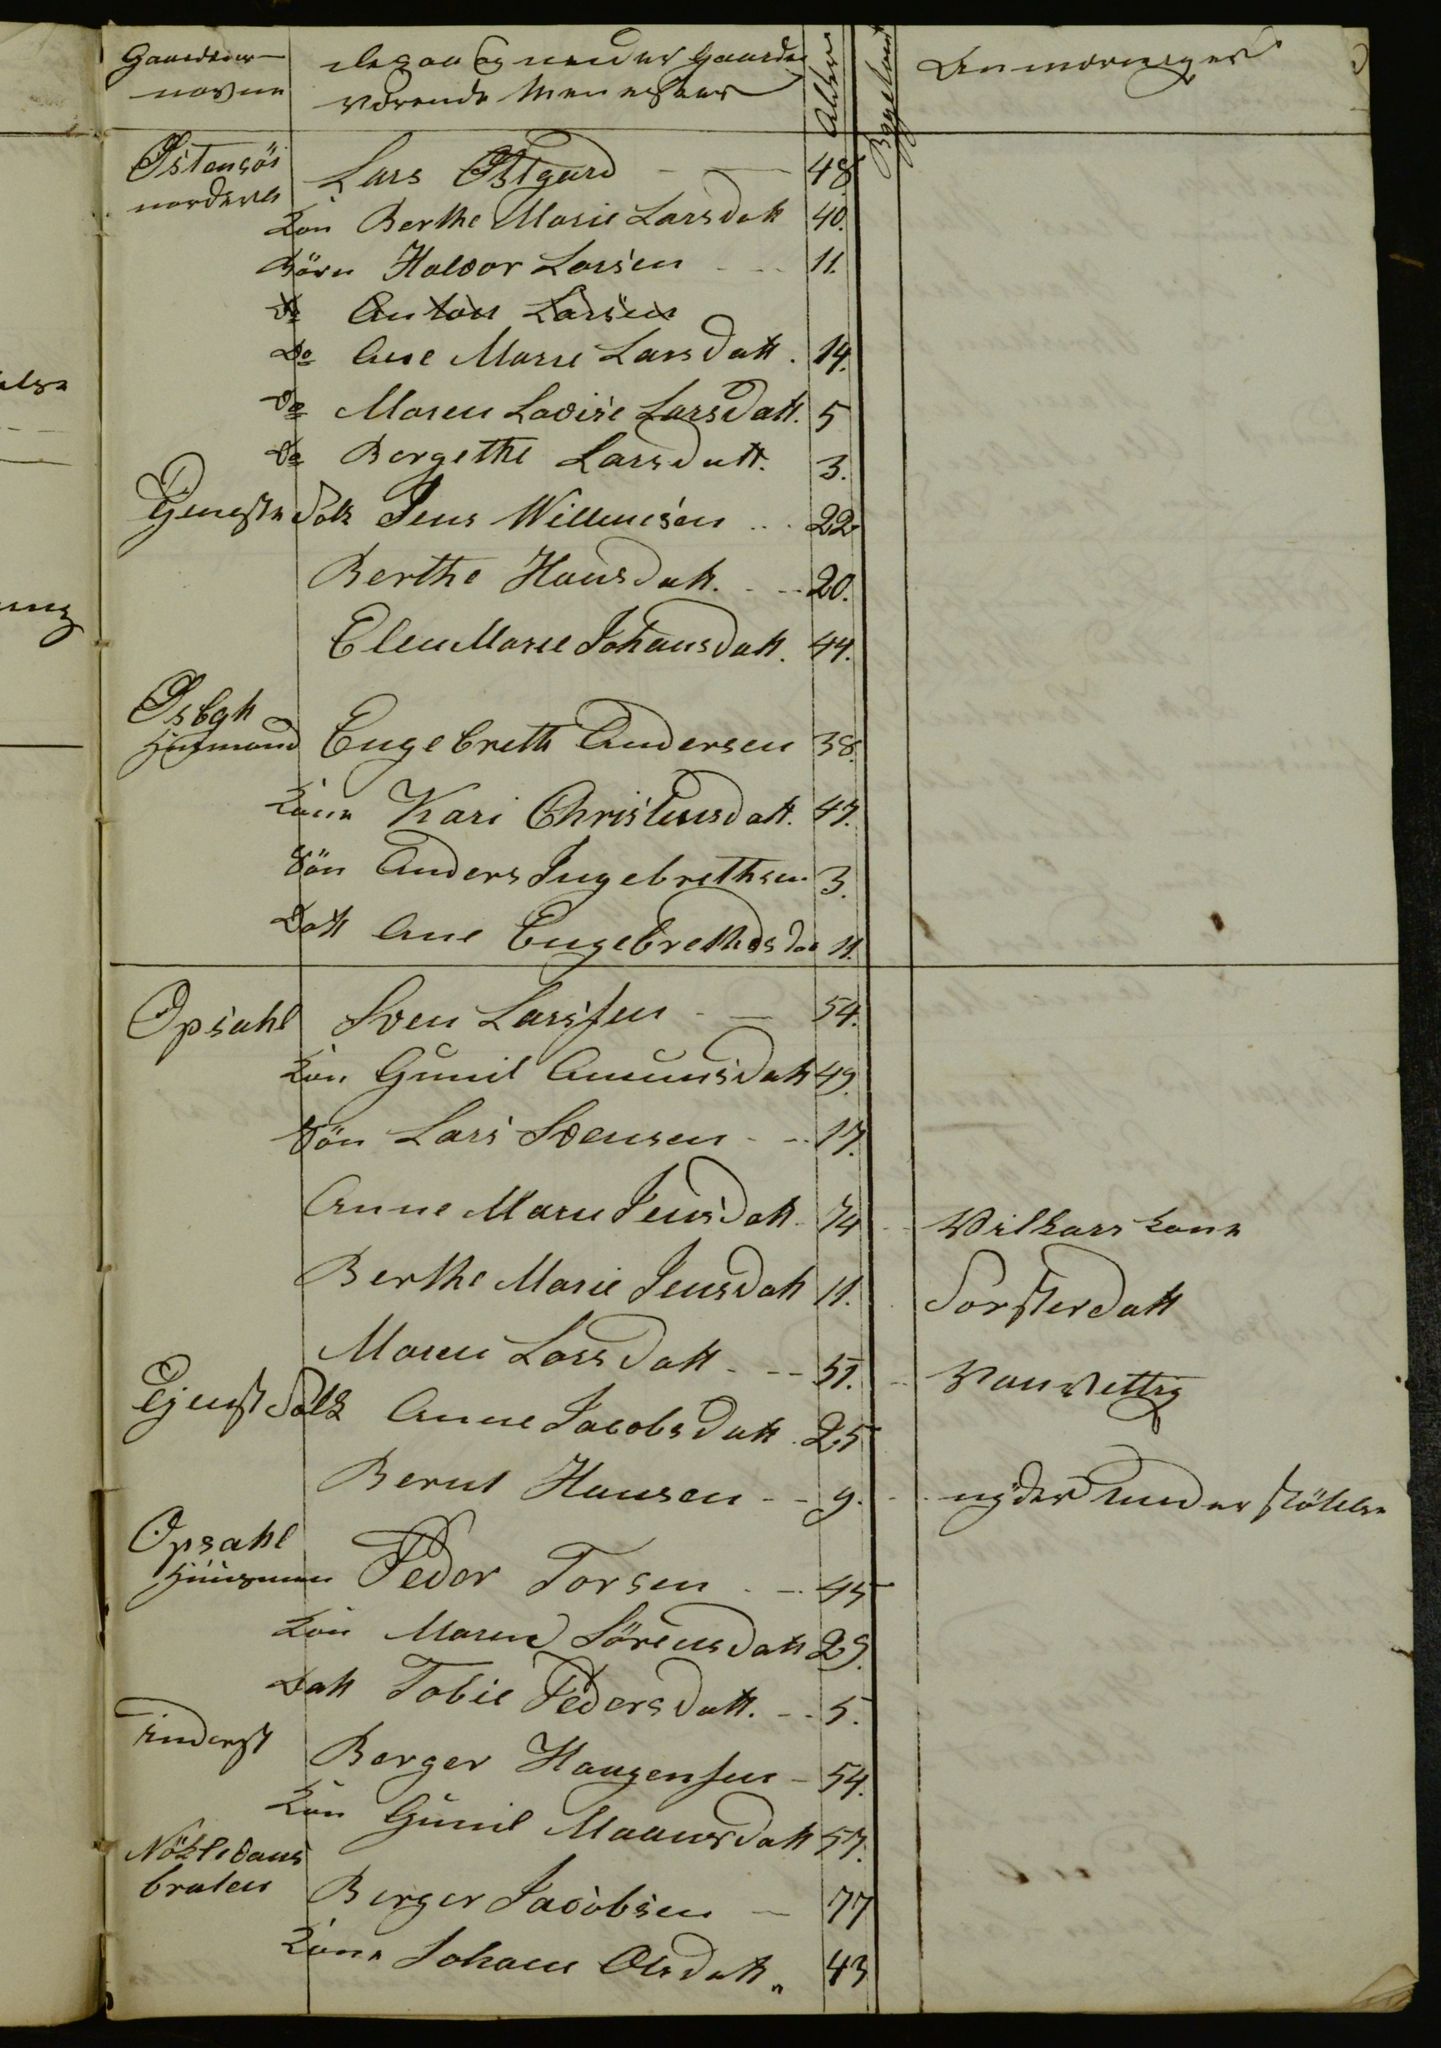 Gaardenes
navne
de paa og under Gaarden
værende Mennesker
Alder
Bygeland
Anmærninger
Østensöi
nordere
Lars Østgard 48
Kon Berthe Marie Larsdatt 40.
Börn Haldor Larsen 11.
Do Anton Larsen
Do Ane Marie Larsdatt. 14.
Do Maren Lovise Larsdatt. 5
Do Bergethe Larsdatt. 3.
Tjeneste Folk Jens Willumsen 22
Berthe Hansdatt. 20.
Elen Marie Johansdatt. 44.
Øsbgh
Husmand Engebreth Andersen 38.
Kone Kari Christensdatt. 47.
Sön Anders Ingebrethsen 3.
Datt Ane Engebrethsdat 11.
Opsahl Sven Larssen 54.
Kon Gunil Amunsdatt 49.
Sön Lars Svensen 17.
Anne Marie Jensdatt 74 Vilkars kone
Berthe Marie Jensdatt 11. Forsterdatt
Maren Larsdatt 51. Vanvettig
Tjenst Folk Anne Jacobsdatt. 25
Bernt Hansen 9. nyder understötelse
Opsahl
Huusman Peder Torsen 45
Kon Maren Sörensdatt 29.
Datt Tobie Pedersdatt. 5.
Inderst Berger Haagensen 54.
Kon Gunil Maansdatt 57.
Nökledans
braten Berger Jacobsen 77
Kone Johane Olsdatt. 43